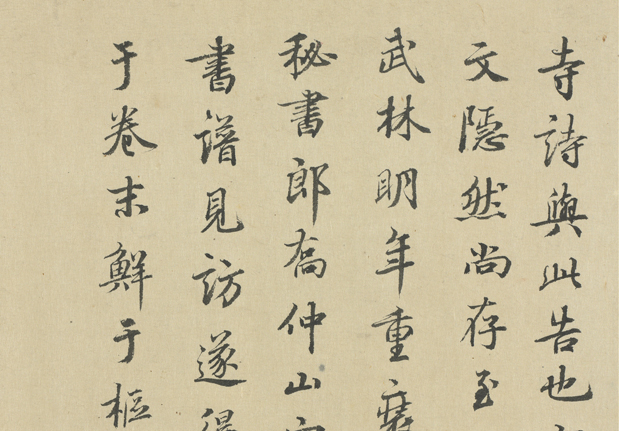 寺詩與此告也
文隱然尚存至
武林明年重裝
秘書郎喬仲山
書譜見訪遂得
于卷末鮮于樞